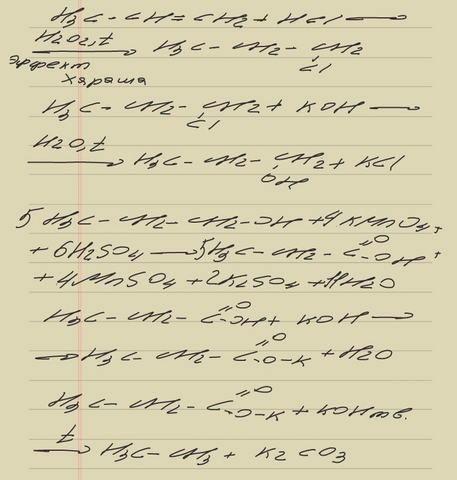 H3C - CH = CH2 + HCl ⟶
H2O2, t ⟶ H3C - CH2 - CH2
Cl
эффект
Хараша
H3C - CH2 - CH2 + KOH ⟶
Cl
H2O, t ⟶ H3C - CH2 - CH2 + KCl
OH
5 H3C - CH2 - CH2 - OH + 4 KMnO4 +
+ 6H2SO4 ⟶ 5H3C - CH2 - C =O -OH +
+ 4MnSO4 + 2K2SO4 + 11H2O
H3C - CH2 - C =O -OH + KOH ⟶
⟶ H3C - CH2 - C =O -O-K + H2O
H3C - CH2 - C =O -O-K + KOH тв.
t ⟶ H3C - CH3 + K2CO3